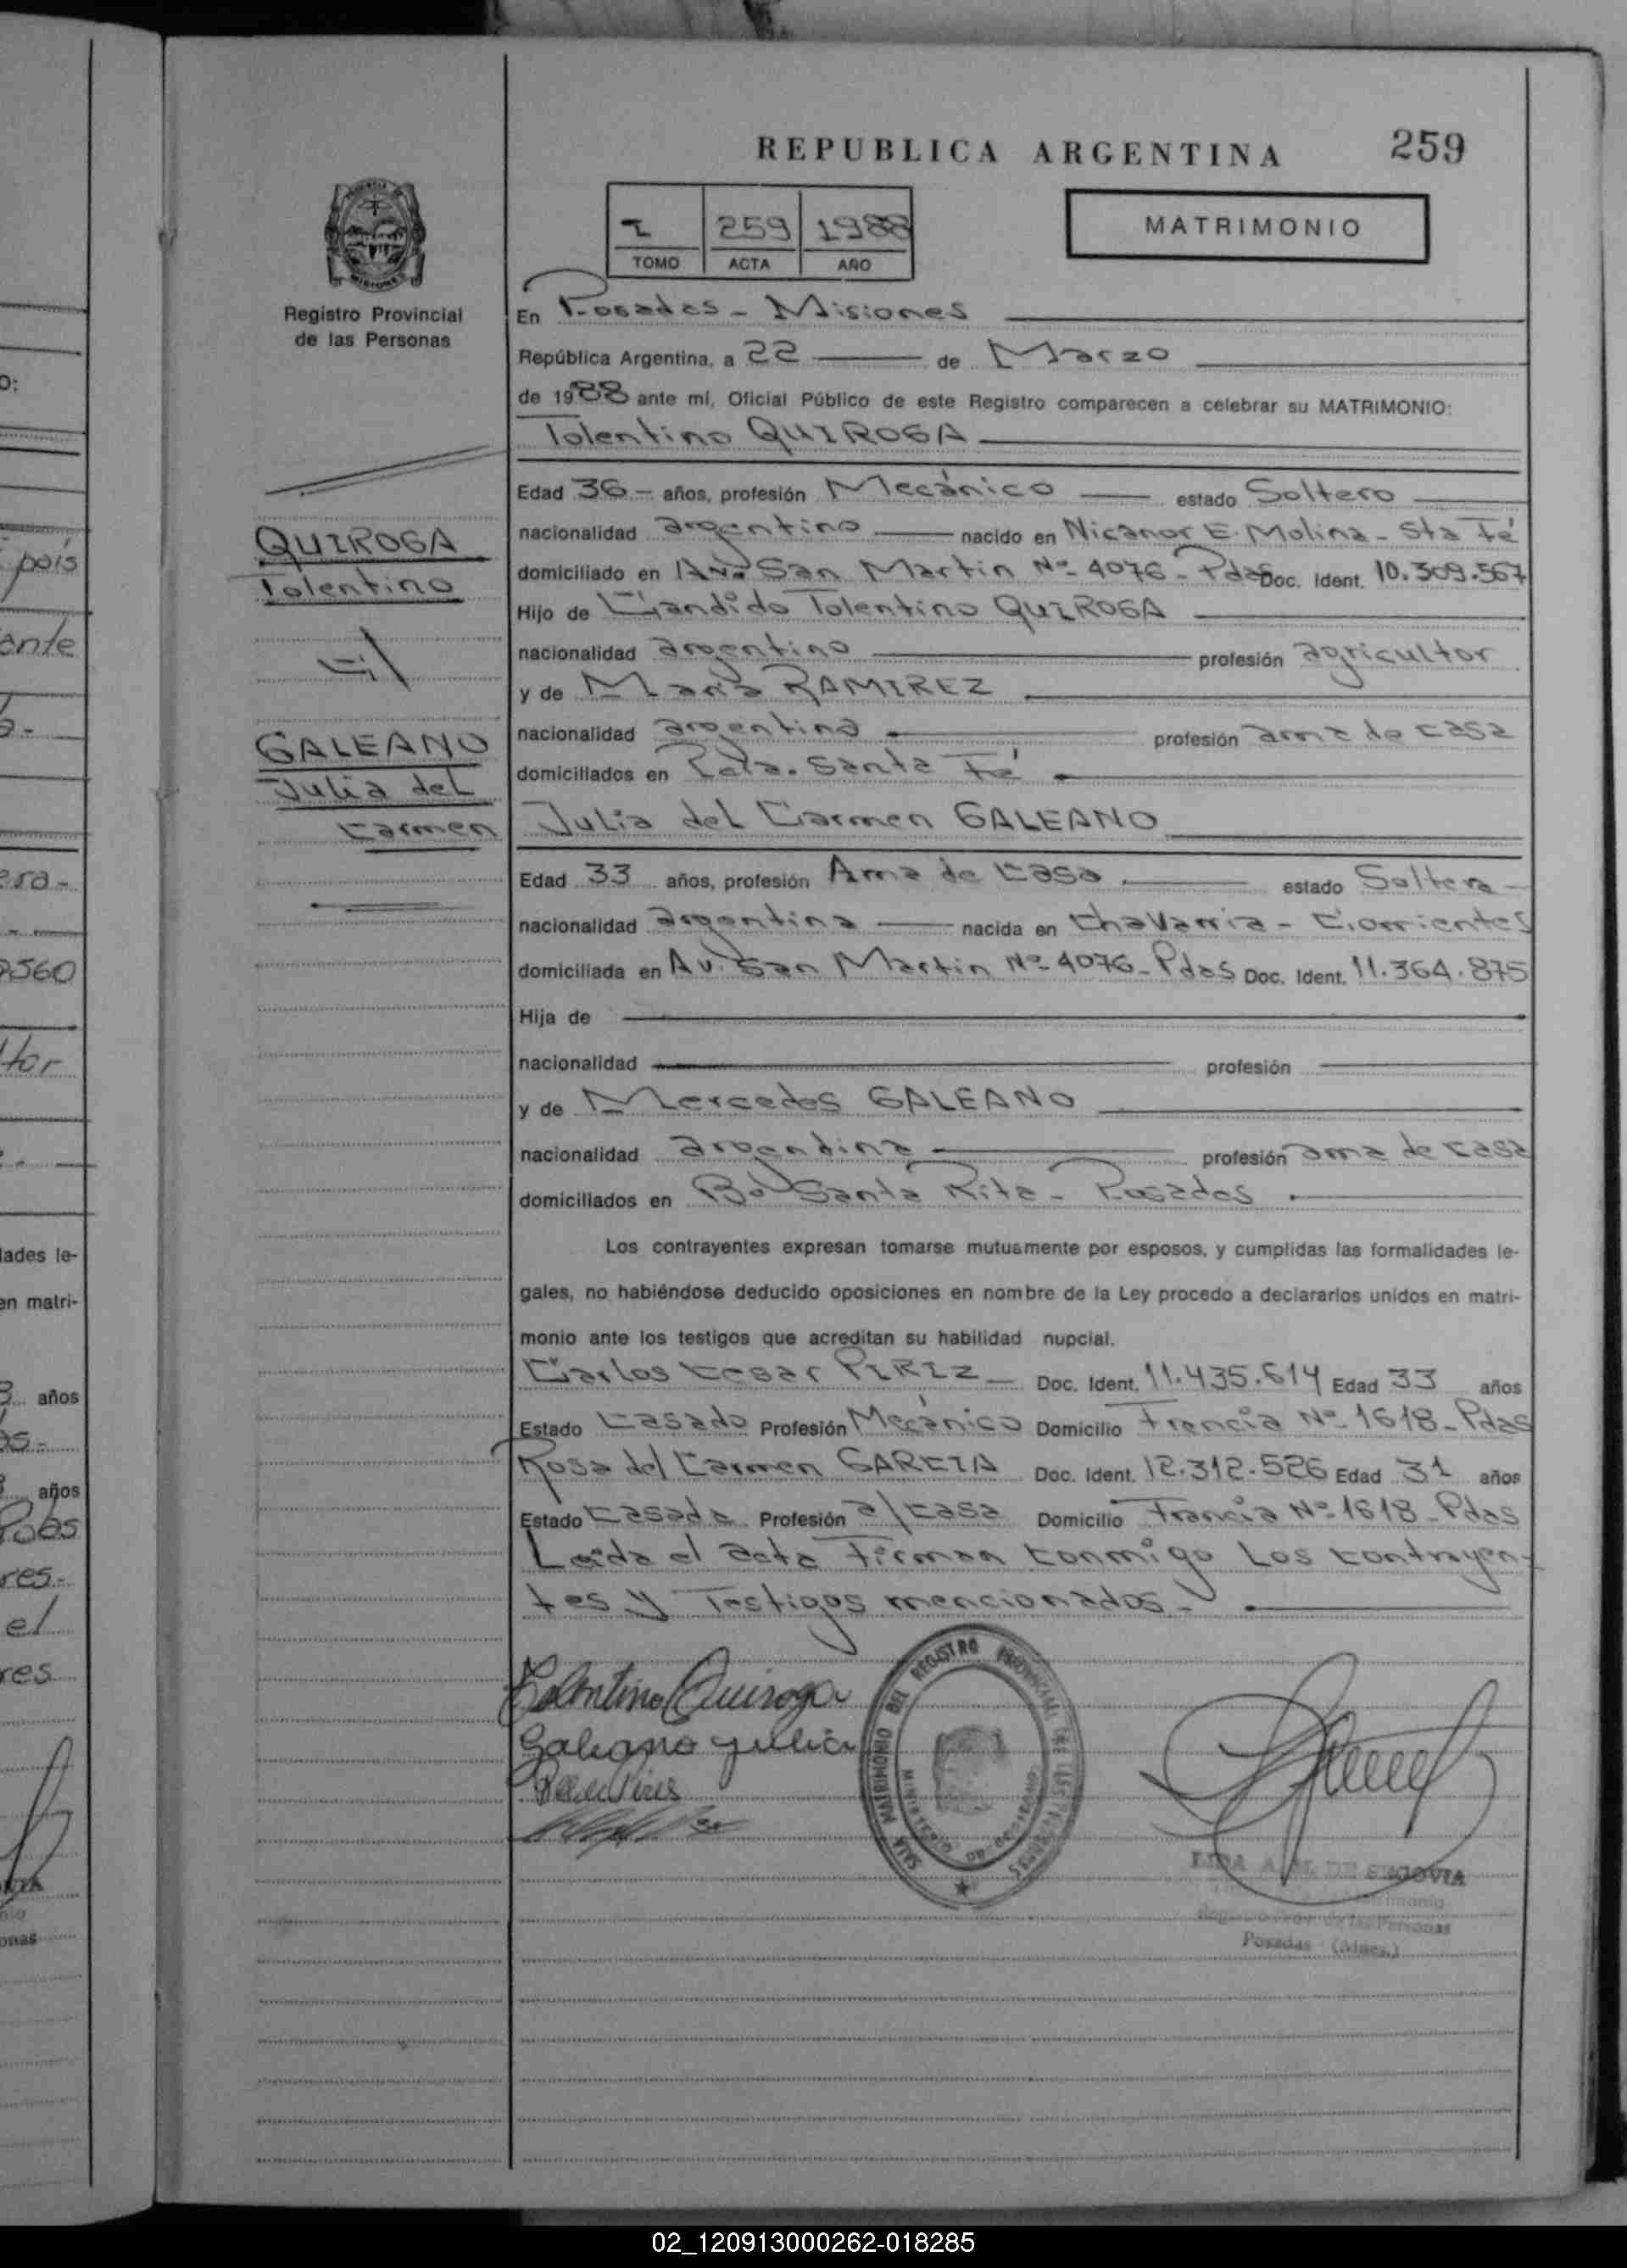 REPUBLICA ARGENTINA 259
I 259 1988
TOMO ACTA AÑO
MATRIMONIO
Registro Provincial
de las Personas
En Posadas - Misiones
República Argentina, a 22 de Marzo
de 1988 ante mí, Oficial Público de este Registro comparecen a celebrar su MATRIMONIO:
Tolentino QUIROGA
Edad 36 años, profesión Mecánico estado Soltero
nacionalidad argentino nacido en Nicanor E. Molina - Sta Fé
domiciliado en Av. San Martin Nº 4076 - Pdas Doc. Ident. 10.309.567
Hijo de Candido Tolentino QUIROGA
nacionalidad argentino profesión agricultor
y de Maria RAMIREZ
nacionalidad argentina profesión ama de casa
domiciliados en Santa Fé
QUIROGA
Tolentino
GALEANO
Julia del
Carmen
Julia del Carmen GALEANO
Edad 33 años, profesión Ama de casa estado Soltera
nacionalidad argentina nacida en Chavarria - Corrientes
domiciliada en Av. San Martin Nº 4076 - Pdas Doc. Ident. 11.364.875
Hija de
nacionalidad profesión
y de Mercedes GALEANO
nacionalidad argentina profesión ama de casa
domiciliados en Bº Santa Rita - Posadas
Los contrayentes expresan tomarse mutuamente por esposos, y cumplidas las formalidades le-
gales, no habiéndose deducido oposiciones en nombre de la Ley procedo a declararlos unidos en matri-
monio ante los testigos que acreditan su habilidad nupcial.
Carlos Cesar PIRIZ Doc. Ident. 11.435.614 Edad 33 años
Estado Casado Profesión Mecánico Domicilio Francia Nº 1618 - Pdas
Rosa del Carmen GARCIA Doc. Ident. 12.312.526 Edad 31 años
Estado Casada Profesión a/casa Domicilio Francia Nº 1618 - Pdas
Leida el acta firman conmigo los contrayen-
tes y Testigos mencionados.-
Tolentino Quiroga
Galeano Julia
SALA MATRIMONIO DEL REGISTRO PROVINCIAL DE LAS PERSONAS
MINISTERIO DE GOBIERNO
LIDA A. M. DE SEGOVIA
Registro Prov. de las Personas
Posadas (Mnes.)
país
ante
era-
2560
ltor
lades le-
en matri-
3 años
años
Pdas
res.-
el
res
02_120913000262-018285